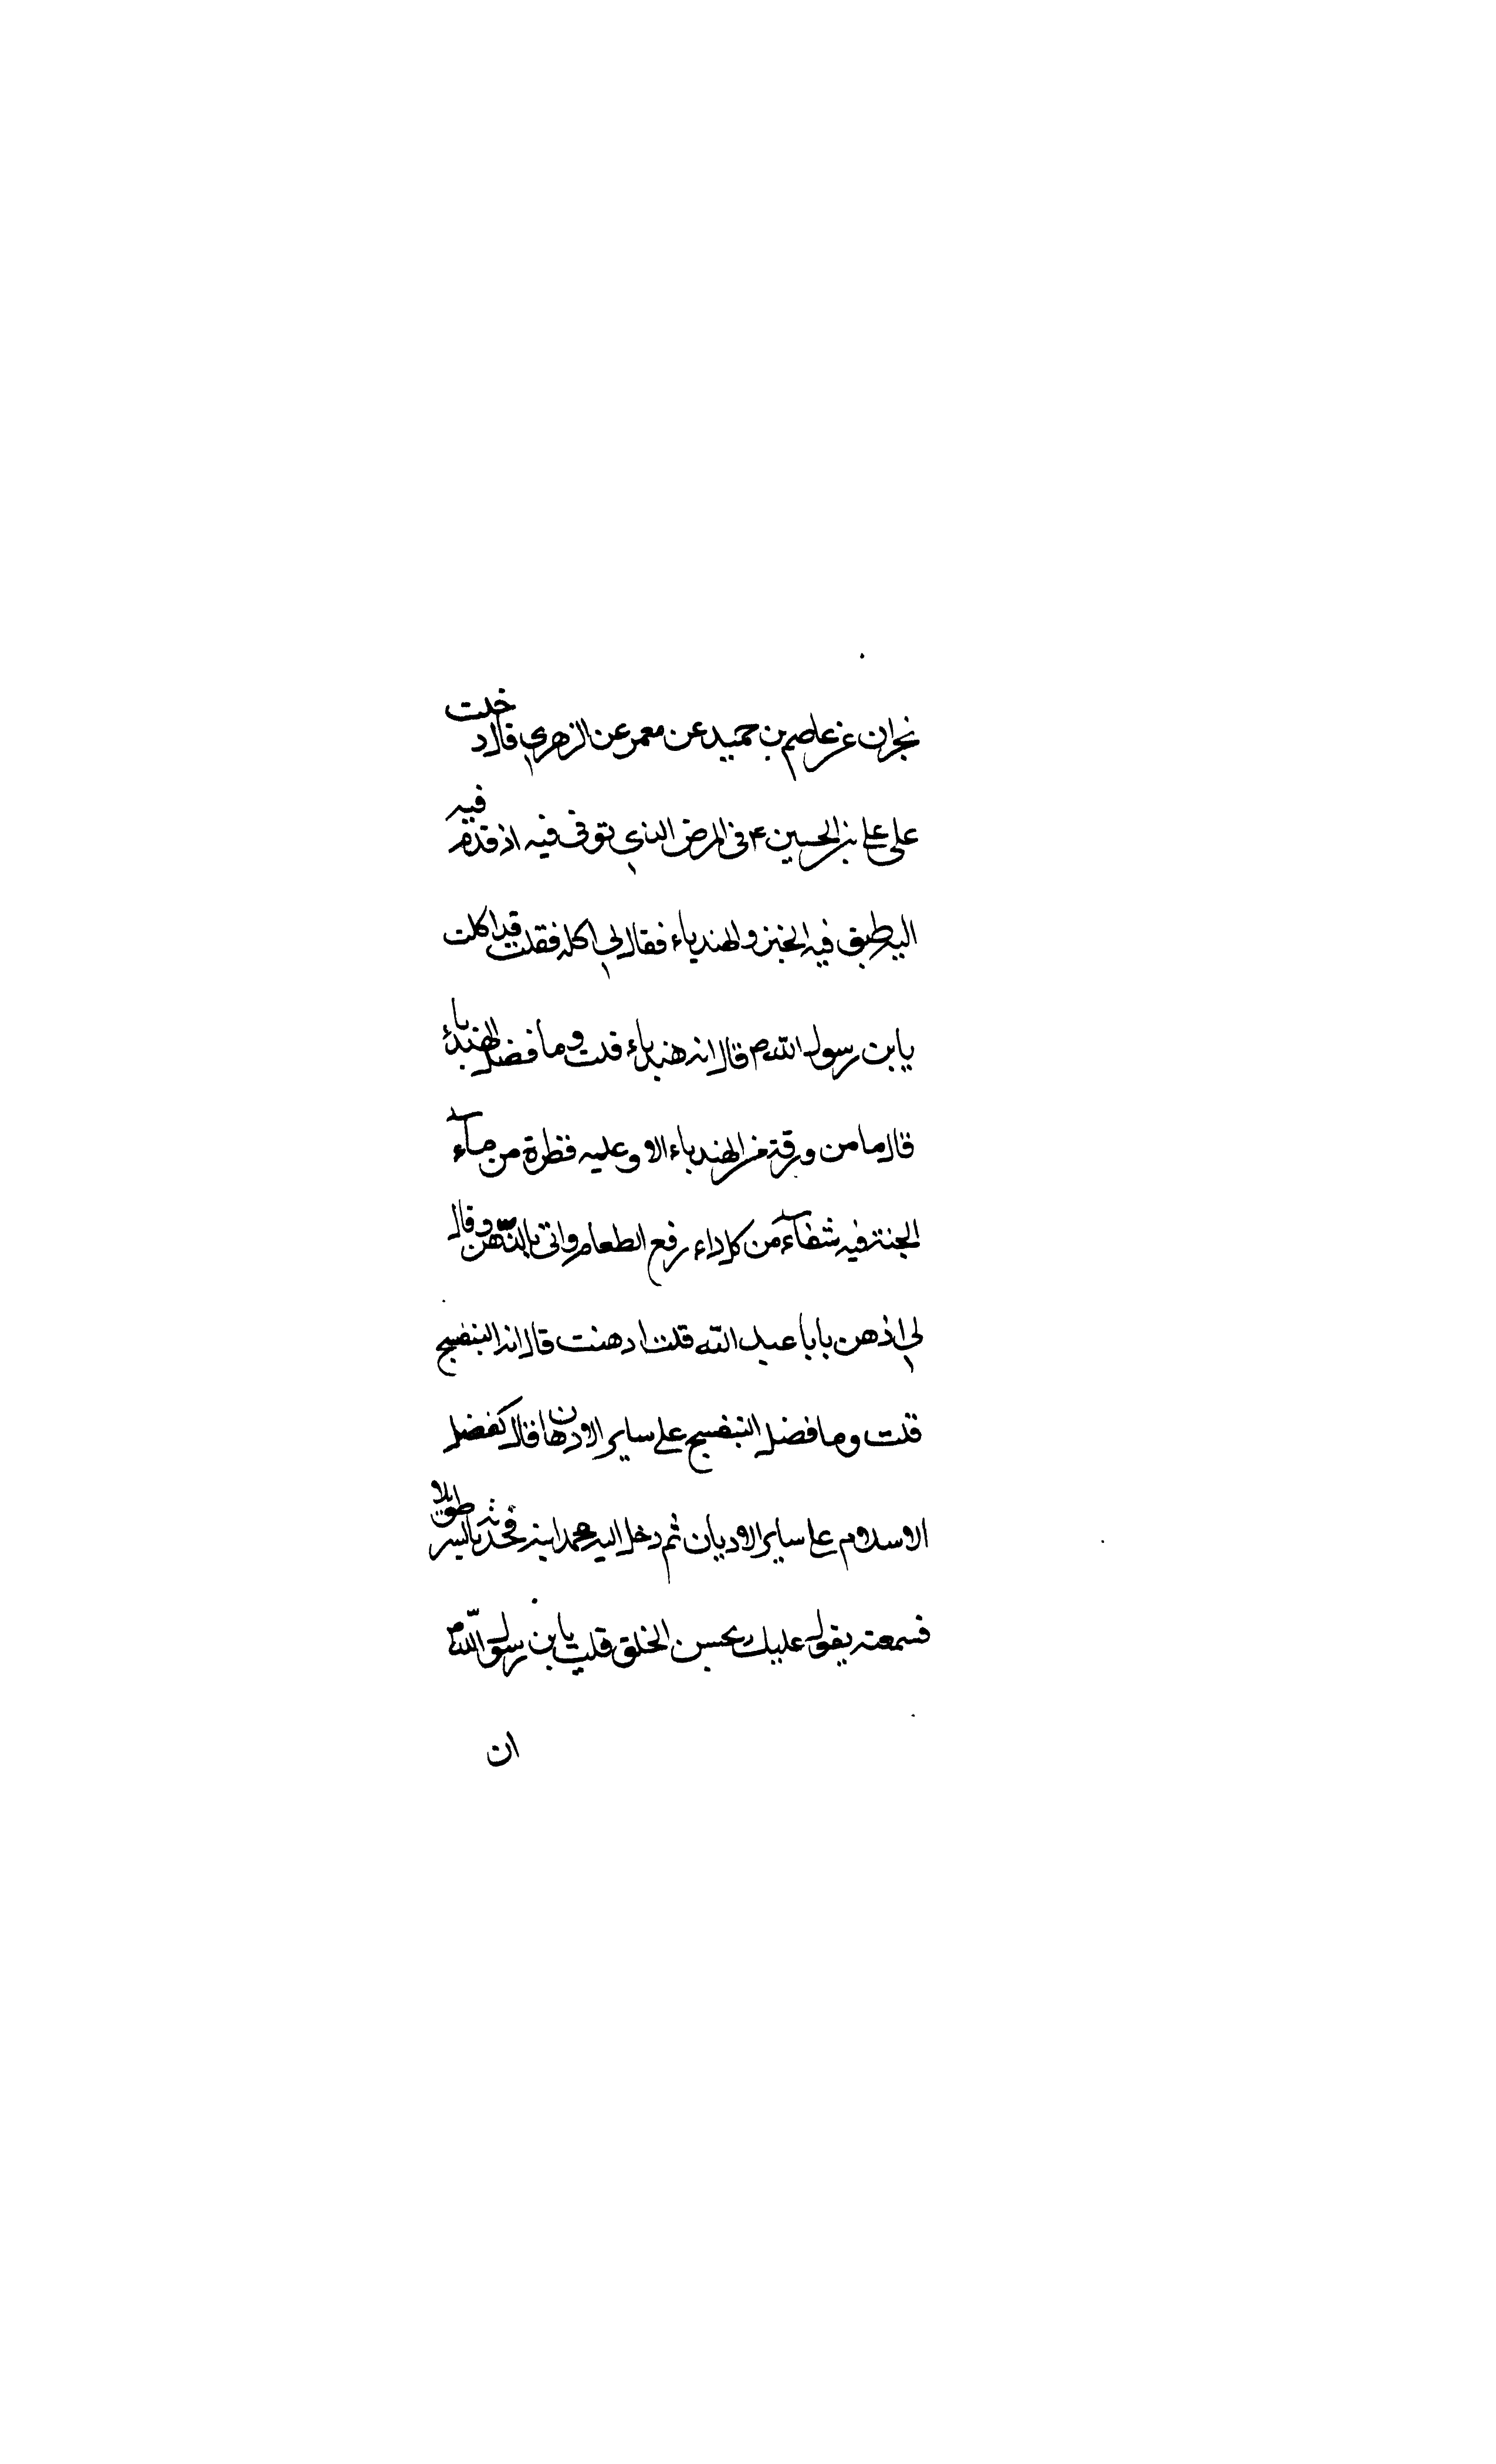 نجران عن عاصم بن حميد عن معمر عن الزهري قال دخلت
على علي بن الحسين ع في المرض الذي توفي فيه اذ قدم فيه
اليه طبق فيه الخبز والهندباء فقال لي اكله فقلت قد اكلت
يابن رسول الله ص قال انه هندباء قلت وما فضل الهندباء
قال ما من ورقة من الهندباء الا وعليه قطرة من مآء
الجنة فيه شفآء من كل داء رفع الطعام واتي بالدهن وقال
لي ادهن يابا عبد الله قلت ادهنت قال انه البنفسج
قلت وما فضل البنفسج على ساير الادهان قال كفضل
الاسلام على ساير الاديان ثم دخل اليه محمد ابنه فحدثه طويلا بالسر
فسمعته يقول عليك بحسن الخلق قلت يابن رسول الله ص
ان